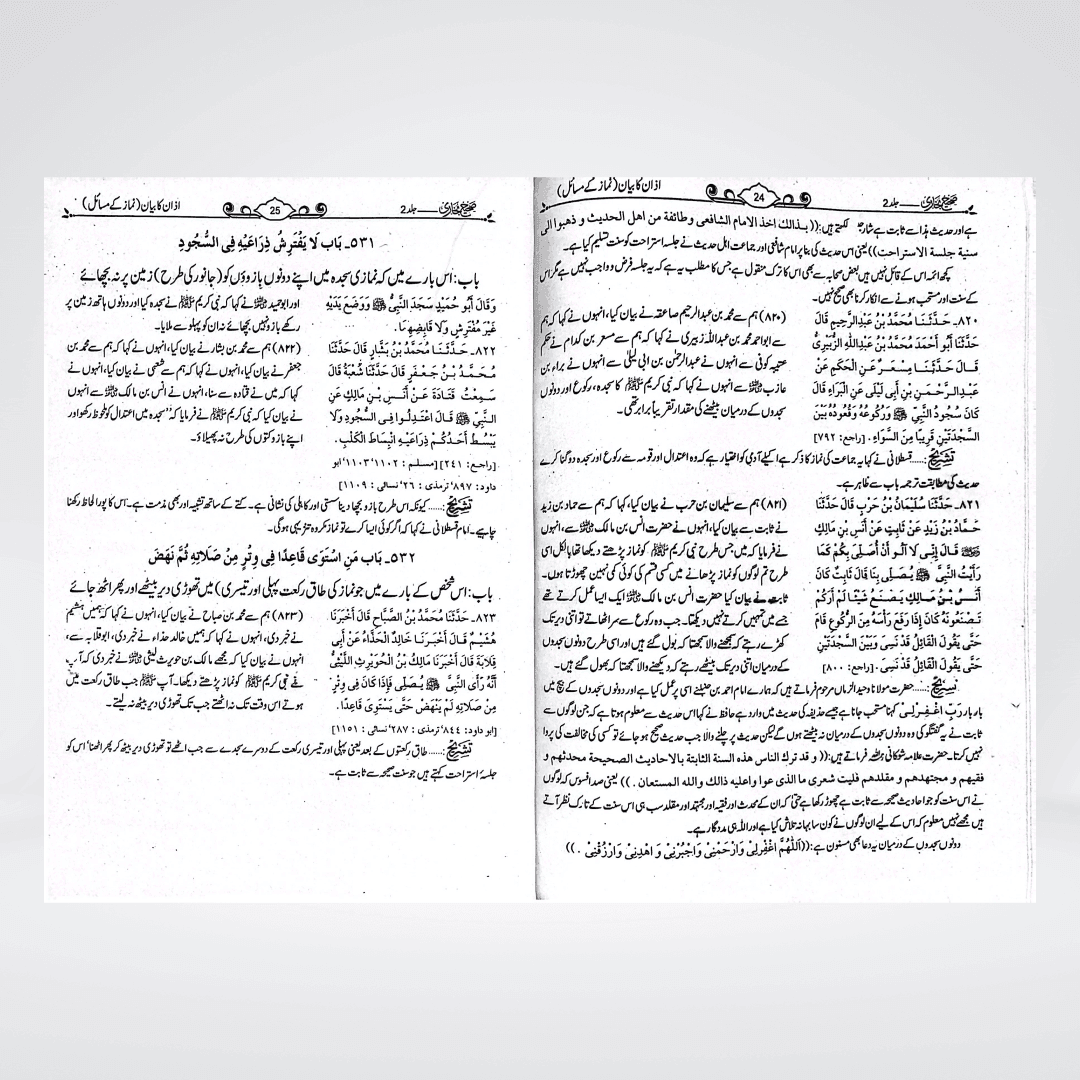 صحیح بخاری — جلد 2
24
اذان کا بیان (نماز کے مسائل)
ہے اور حدیث ہذا سے ثابت ہے شارح لکھتے ہیں: ((بذالك اخذ الامام الشافعى وطائفة من اهل الحديث و ذهبوا الى
سنية جلسة الاستراحت)) یعنی اس حدیث کی بنا پر امام شافعی اور جماعت اہل حدیث نے جلسہ استراحت کو سنت تسلیم کیا ہے۔
کچھ ائمہ اس کے قائل نہیں ہیں بعض صحابہ سے بھی اس کا ترک منقول ہے جس کا مطلب یہ ہے کہ یہ جلسہ فرض و واجب نہیں ہے مگر اس
کے سنت اور مستحب ہونے سے انکار کرنا بھی صحیح نہیں۔
٨٢٠۔ حَدَّثَنَا مُحَمَّدُ بْنُ عَبْدِالرَّحِيمِ قَالَ
حَدَّثَنَا أَبُو أَحْمَدَ مُحَمَّدُ بْنُ عَبْدِاللَّهِ الزُّبَيْرِيُّ
قَالَ حَدَّثَنَا مِسْعَرٌ عَنِ الْحَكَمِ عَنْ
عَبْدِالرَّحْمَنِ بْنِ أَبِي لَيْلَى عَنِ الْبَرَاءِ قَالَ
كَانَ سُجُودُ النَّبِيِّ ﷺ وَرُكُوعُهُ وَقُعُودُهُ بَيْنَ
السَّجْدَتَيْنِ قَرِيبًا مِنَ السَّوَاءِ. [راجع: ٧٩٢]
(۸۲۰) ہم سے محمد بن عبدالرحیم صاعقہ نے بیان کیا، انہوں نے کہا کہ ہم
سے ابو احمد محمد بن عبداللہ زبیری نے کہا کہ ہم سے مسعر بن کدام نے حکم
عتیبہ کوفی سے انہوں نے عبدالرحمٰن بن ابی لیلیٰ سے انہوں نے براء بن
عازب ؓ سے انہوں نے کہا کہ نبی کریم ﷺ کا سجدہ، رکوع اور دونوں
سجدوں کے درمیان بیٹھنے کی مقدار تقریباً برابر تھی۔
تشریح:..... قسطلانی نے کہا یہ جماعت کی نماز کا ذکر ہے اکیلے آدمی کو اختیار ہے کہ وہ اعتدال اور قومہ سے رکوع اور سجدہ دوگنا کرے
حدیث کی مطابقت ترجمہ باب سے ظاہر ہے۔
٨٢١۔ حَدَّثَنَا سُلَيْمَانُ بْنُ حَرْبٍ قَالَ حَدَّثَنَا
حَمَّادُ بْنُ زَيْدٍ عَنْ ثَابِتٍ عَنْ أَنَسِ بْنِ مَالِكٍ
ؓ قَالَ إِنِّي لَا آلُو أَنْ أُصَلِّيَ بِكُمْ كَمَا
رَأَيْتُ النَّبِيَّ ﷺ يُصَلِّي بِنَا قَالَ ثَابِتٌ كَانَ
أَنَسُ بْنُ مَالِكٍ يَصْنَعُ شَيْئًا لَمْ أَرَكُمْ
تَصْنَعُونَهُ كَانَ إِذَا رَفَعَ رَأْسَهُ مِنَ الرُّكُوعِ قَامَ
حَتَّى يَقُولَ الْقَائِلُ قَدْ نَسِيَ وَبَيْنَ السَّجْدَتَيْنِ
حَتَّى يَقُولَ الْقَائِلُ قَدْ نَسِيَ. [راجع: ٨٠٠]
(۸۲۱) ہم سے سلیمان بن حرب نے بیان کیا، کہا کہ ہم سے حماد بن زید
نے ثابت سے بیان کیا، انہوں نے حضرت انس بن مالک ؓ سے، انہوں
نے فرمایا کہ میں جس طرح نبی کریم ﷺ کو نماز پڑھتے دیکھا تھا بالکل اسی
طرح تم لوگوں کو نماز پڑھانے میں کسی قسم کی کوئی کمی نہیں چھوڑتا ہوں۔
ثابت نے بیان کیا حضرت انس بن مالک ؓ ایک ایسا عمل کرتے تھے
جسے میں تمہیں کرتے نہیں دیکھتا۔ جب وہ رکوع سے سر اٹھاتے تو اتنی دیر تک
کھڑے رہتے کہ دیکھنے والا سمجھتا کہ بھول گئے ہیں اور اسی طرح دونوں سجدوں
کے درمیان اتنی دیر تک بیٹھے رہتے کہ دیکھنے والا سمجھتا کہ بھول گئے ہیں۔
تشریح:..... حضرت مولانا وحید الزماں مرحوم فرماتے ہیں کہ ہمارے امام احمد بن حنبل نے اسی پر عمل کیا ہے اور دونوں سجدوں کے بیچ میں
بار بار رَبِّ اغْفِرْلِيْ کہنا مستحب جانا ہے جیسے حذیفہ کی حدیث میں وارد ہے حافظ نے کہا اس حدیث سے معلوم ہوتا ہے کہ جن لوگوں سے
ثابت نے یہ گفتگو کی وہ دونوں سجدوں کے درمیان نہ بیٹھتے ہوں گے لیکن حدیث پر چلنے والا جب حدیث صحیح ہو جائے تو کسی کی مخالفت کی پروا
نہیں کرتا۔ حضرت علامہ شوکانی رحمہ اللہ فرماتے ہیں: ((و قد ترك الناس هذه السنة الثابتة بالاحاديث الصحيحة محدثهم و
فقيهم و مجتهدهم و مقلدهم فليت شعرى ما الذى عوا واعليه ذالك والله المستعان.)) یعنی صد افسوس کہ لوگوں
نے اس سنت کو جو احادیث صحیحہ سے ثابت ہے چھوڑ رکھا ہے حتیٰ کہ ان کے محدث اور فقیہ اور مجتہد اور مقلد سب ہی اس سنت کے تارک نظر آتے
ہیں مجھے نہیں معلوم کہ اس کے لیے ان لوگوں نے کون سا بہانہ تلاش کیا ہے اور اللہ ہی مددگار ہے۔
دونوں سجدوں کے درمیان یہ دعا بھی مسنون ہے: ((اَللّٰهُمَّ اغْفِرْلِيْ وَارْحَمْنِيْ وَاجْبُرْنِيْ وَ اهْدِنِيْ وَارْزُقْنِيْ.))
صحیح بخاری — جلد 2
25
اذان کا بیان (نماز کے مسائل)
٥٣١۔ بَاب لَا يَفْتَرِشُ ذِرَاعَيْهِ فِي السُّجُودِ
باب: اس بارے میں کہ نمازی سجدہ میں اپنے دونوں بازوؤں کو (جانور کی طرح) زمین پر نہ بچھائے
وَقَالَ أَبُو حُمَيْدٍ سَجَدَ النَّبِيُّ ﷺ وَوَضَعَ يَدَيْهِ
غَيْرَ مُفْتَرِشٍ وَلَا قَابِضِهِمَا.
اور ابو حمید ؓ نے کہا کہ نبی کریم ﷺ نے سجدہ کیا اور دونوں ہاتھ زمین پر
رکھے بازو نہیں بچھائے نہ ان کو پہلو سے ملایا۔
٨٢٢۔ حَدَّثَنَا مُحَمَّدُ بْنُ بَشَّارٍ قَالَ حَدَّثَنَا
مُحَمَّدُ بْنُ جَعْفَرٍ قَالَ حَدَّثَنَا شُعْبَةُ قَالَ
سَمِعْتُ قَتَادَةَ عَنْ أَنَسِ بْنِ مَالِكٍ عَنِ
النَّبِيِّ ﷺ قَالَ اعْتَدِلُوا فِي السُّجُودِ وَلَا
يَبْسُطْ أَحَدُكُمْ ذِرَاعَيْهِ انْبِسَاطَ الْكَلْبِ.
[راجع: ٢٤١] [مسلم: ١١٠٢، ١١٠٣؛ ابو
داود: ٨٩٧؛ ترمذی: ٢٦؛ نسائی: ١١٠٩]
(۸۲۲) ہم سے محمد بن بشار نے بیان کیا، انہوں نے کہا کہ ہم سے محمد بن
جعفر نے بیان کیا، انہوں نے کہا کہ ہم سے شعبی نے بیان کیا، انہوں نے
کہا کہ میں نے قتادہ سے سنا، انہوں نے انس بن مالک ؓ سے انہوں
نے بیان کیا کہ نبی کریم ﷺ نے فرمایا کہ ”سجدہ میں اعتدال کو ملحوظ رکھو اور
اپنے بازو کتوں کی طرح نہ پھیلاؤ۔
تشریح:..... کیونکہ اس طرح بازو بچھا دینا سستی اور کاہلی کی نشانی ہے۔ کتے کے ساتھ تشبیہ اور بھی مذمت ہے۔ اس کا پورا لحاظ رکھنا
چاہیے۔ امام قسطلانی نے کہا کہ اگر کوئی ایسا کرے تو نماز مکروہ تنزیہی ہوگی۔
٥٣٢۔ بَاب مَنِ اسْتَوَى قَاعِدًا فِي وِتْرٍ مِنْ صَلَاتِهِ ثُمَّ نَهَضَ
باب: اس شخص کے بارے میں جو نماز کی طاق رکعت پہلی اور تیسری) میں تھوڑی دیر بیٹھے اور پھر اٹھ جائے
٨٢٣۔ حَدَّثَنَا مُحَمَّدُ بْنُ الصَّبَّاحِ قَالَ أَخْبَرَنَا
هُشَيْمٌ قَالَ أَخْبَرَنَا خَالِدٌ الْحَذَّاءُ عَنْ أَبِي
قِلَابَةَ قَالَ أَخْبَرَنَا مَالِكُ بْنُ الْحُوَيْرِثِ اللَّيْثِيُّ
أَنَّهُ رَأَى النَّبِيَّ ﷺ يُصَلِّي فَإِذَا كَانَ فِي وِتْرٍ
مِنْ صَلَاتِهِ لَمْ يَنْهَضْ حَتَّى يَسْتَوِيَ قَاعِدًا.
[ابو داود: ٨٤٤؛ ترمذی: ٢٨٧؛ نسائی: ١١٥١]
(۸۲۳) ہم سے محمد بن صباح نے بیان کیا، انہوں نے کہا کہ ہمیں ہشیم
نے خبر دی، انہوں نے کہا کہ ہمیں خالد حذاء نے خبر دی، ابو قلابہ سے،
انہوں نے بیان کیا کہ مجھے مالک بن حویرث لیثی ؓ نے خبر دی کہ آپ
نے نبی کریم ﷺ کو نماز پڑھتے دیکھا۔ آپ ﷺ جب طاق رکعت میں
ہوتے اس وقت تک نہ اٹھتے جب تک تھوڑی دیر بیٹھ نہ لیتے۔
تشریح:..... طاق رکعتوں کے بعد یعنی پہلی اور تیسری رکعت کے دوسرے سجدے سے جب اٹھے تو تھوڑی دیر بیٹھ کر پھر اٹھنا‘ اس کو
جلسۂ استراحت کہتے ہیں جو سنت صحیحہ سے ثابت ہے۔